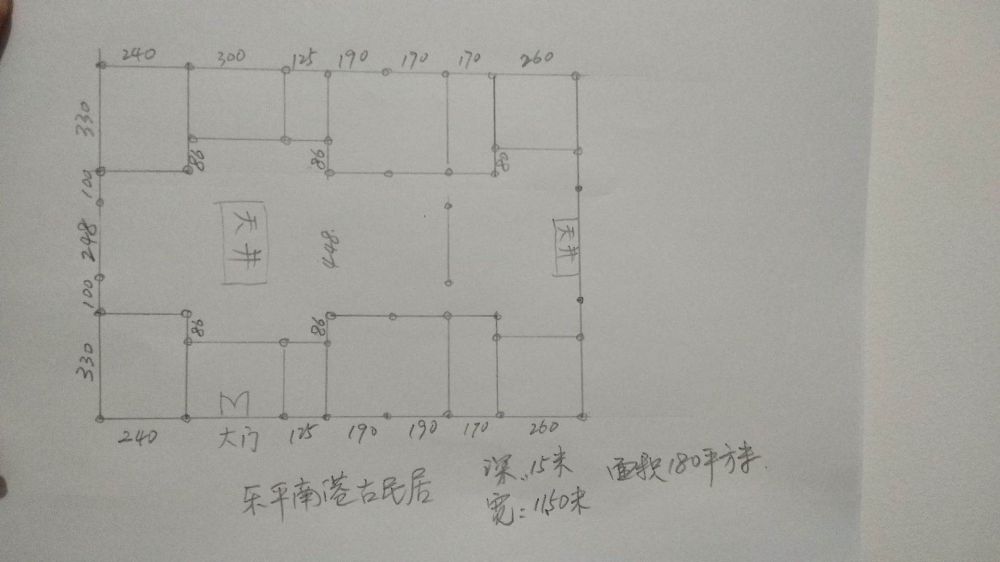 240 300 125 190 170 170 260
330
100
248
100
330
86
86
80
天井
448
天井
86
86
240 大门 125 190 190 170 260
乐平南港古民居
深:15米 面积180平方米.
宽:11.50米